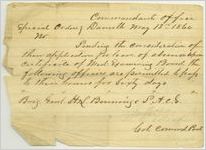 Commandant's Office
Special Orders Danville May 18th 186
No.
Pending the consideration of
their application for leave of absence on
certificate of Med Examining Board the
following officers are permitted to go
to their homes for sixty days
Brig Genl H. L. Benning P.A.C.S.
Col. Comnd Post